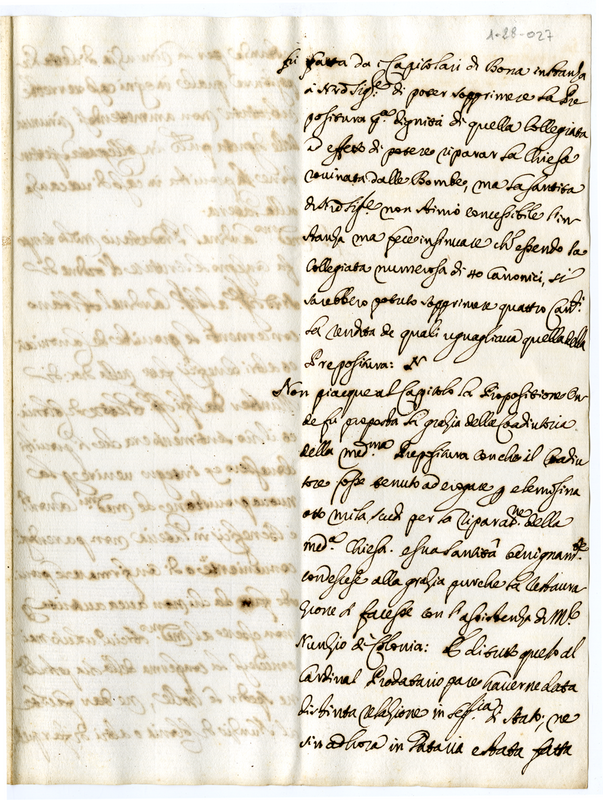 1-28-027
fu fatta da Capitolari di Bona instanza
à N.ro Sig.re di poter sopprimere la Pre
positura p.a dignità di quella Collegiata
ad effetto di potere riparar la Chiesa
rovinata dalle Bombe, ma la santità
di N.ro Sig.re non stimò concessibile l'in
stanza ma fece insinuare ch'essendo la
Collegiata numerosa di 40 Canonici, si
sarebbero potuto sopprimere quattro Can.ti
la rendita de quali uguagliava quella della
Prepositura:
Non piacque al Capitolo la Propositione On
de fu proposta la grazia della Coadiutoria
della med.ma Prepositura con che il Coadiu
tore fosse tenuto ad erogare p elemosina
otto mila scudi per la riparat.ne della
med.a Chiesa. e sua santità benignam.te
condescese alla grazia purche la restaura
zione si facesse con l'assistenza di M.r
Nunzio di Colonia: E di tutto questo al
Cardinal Prodatario pare haverne data
distinta relazione in seg.ria di stato; ne
sin adhora in Dataria è stata fatta